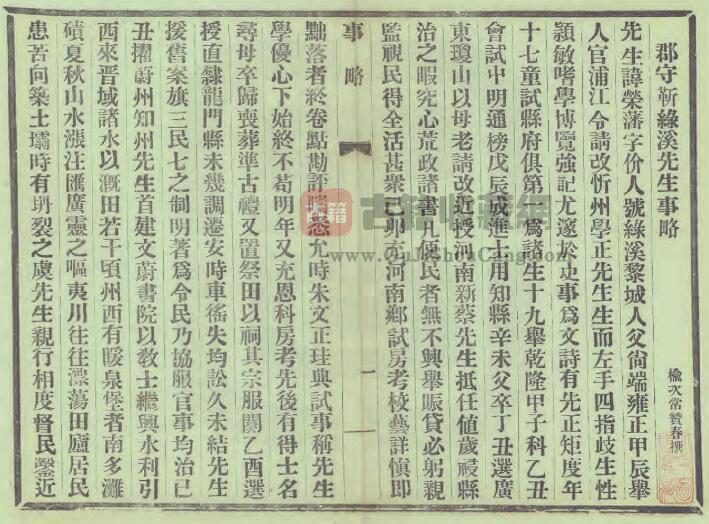 郡守靳綠溪先生事略
榆次常贊春撰
先生諱榮藩字价人號綠溪黎城人父尚端雍正甲辰舉
人官浦江令請改忻州學正先生生而左手四指歧生性
穎敏嗜學博覽強記尤邃於史事爲文詩有先正矩度年
十七童試縣府俱第一爲諸生十九舉乾隆甲子科乙丑
會試中明通榜戊辰成進士用知縣辛未父卒丁丑選廣
東瓊山以母老請改近授河南新蔡先生抵任値歲祲縣
治之暇究心荒政諸書凡便民者無不興舉賑貸必躬親
監視民得全活甚衆己卯充河南鄉試房考校藝詳愼即
事略
一
黜落者終卷點勘評隲悉允時朱文正珪典試事稱先生
學優心下始終不苟明年又充恩科房考先後有得士名
尋母卒歸喪葬準古禮又置祭田以祠其宗服闋乙酉選
授直隸龍門縣未幾調遷安時車徭失均訟久未結先生
援舊案旗三民七之制明著爲令民乃協服官事均治已
丑擢蔚州知州先生首建文蔚書院以敎士繼興水利引
西來晋域諸水以漑田若干頃州西有暖泉堡者南多灘
磧夏秋山水漲注匯廣靈之嘔夷川往往漂蕩田廬居民
患苦向築土壩時有坍裂之虞先生親行相度督民鑿近
古籍收藏網
www.GuJiShouCang.com